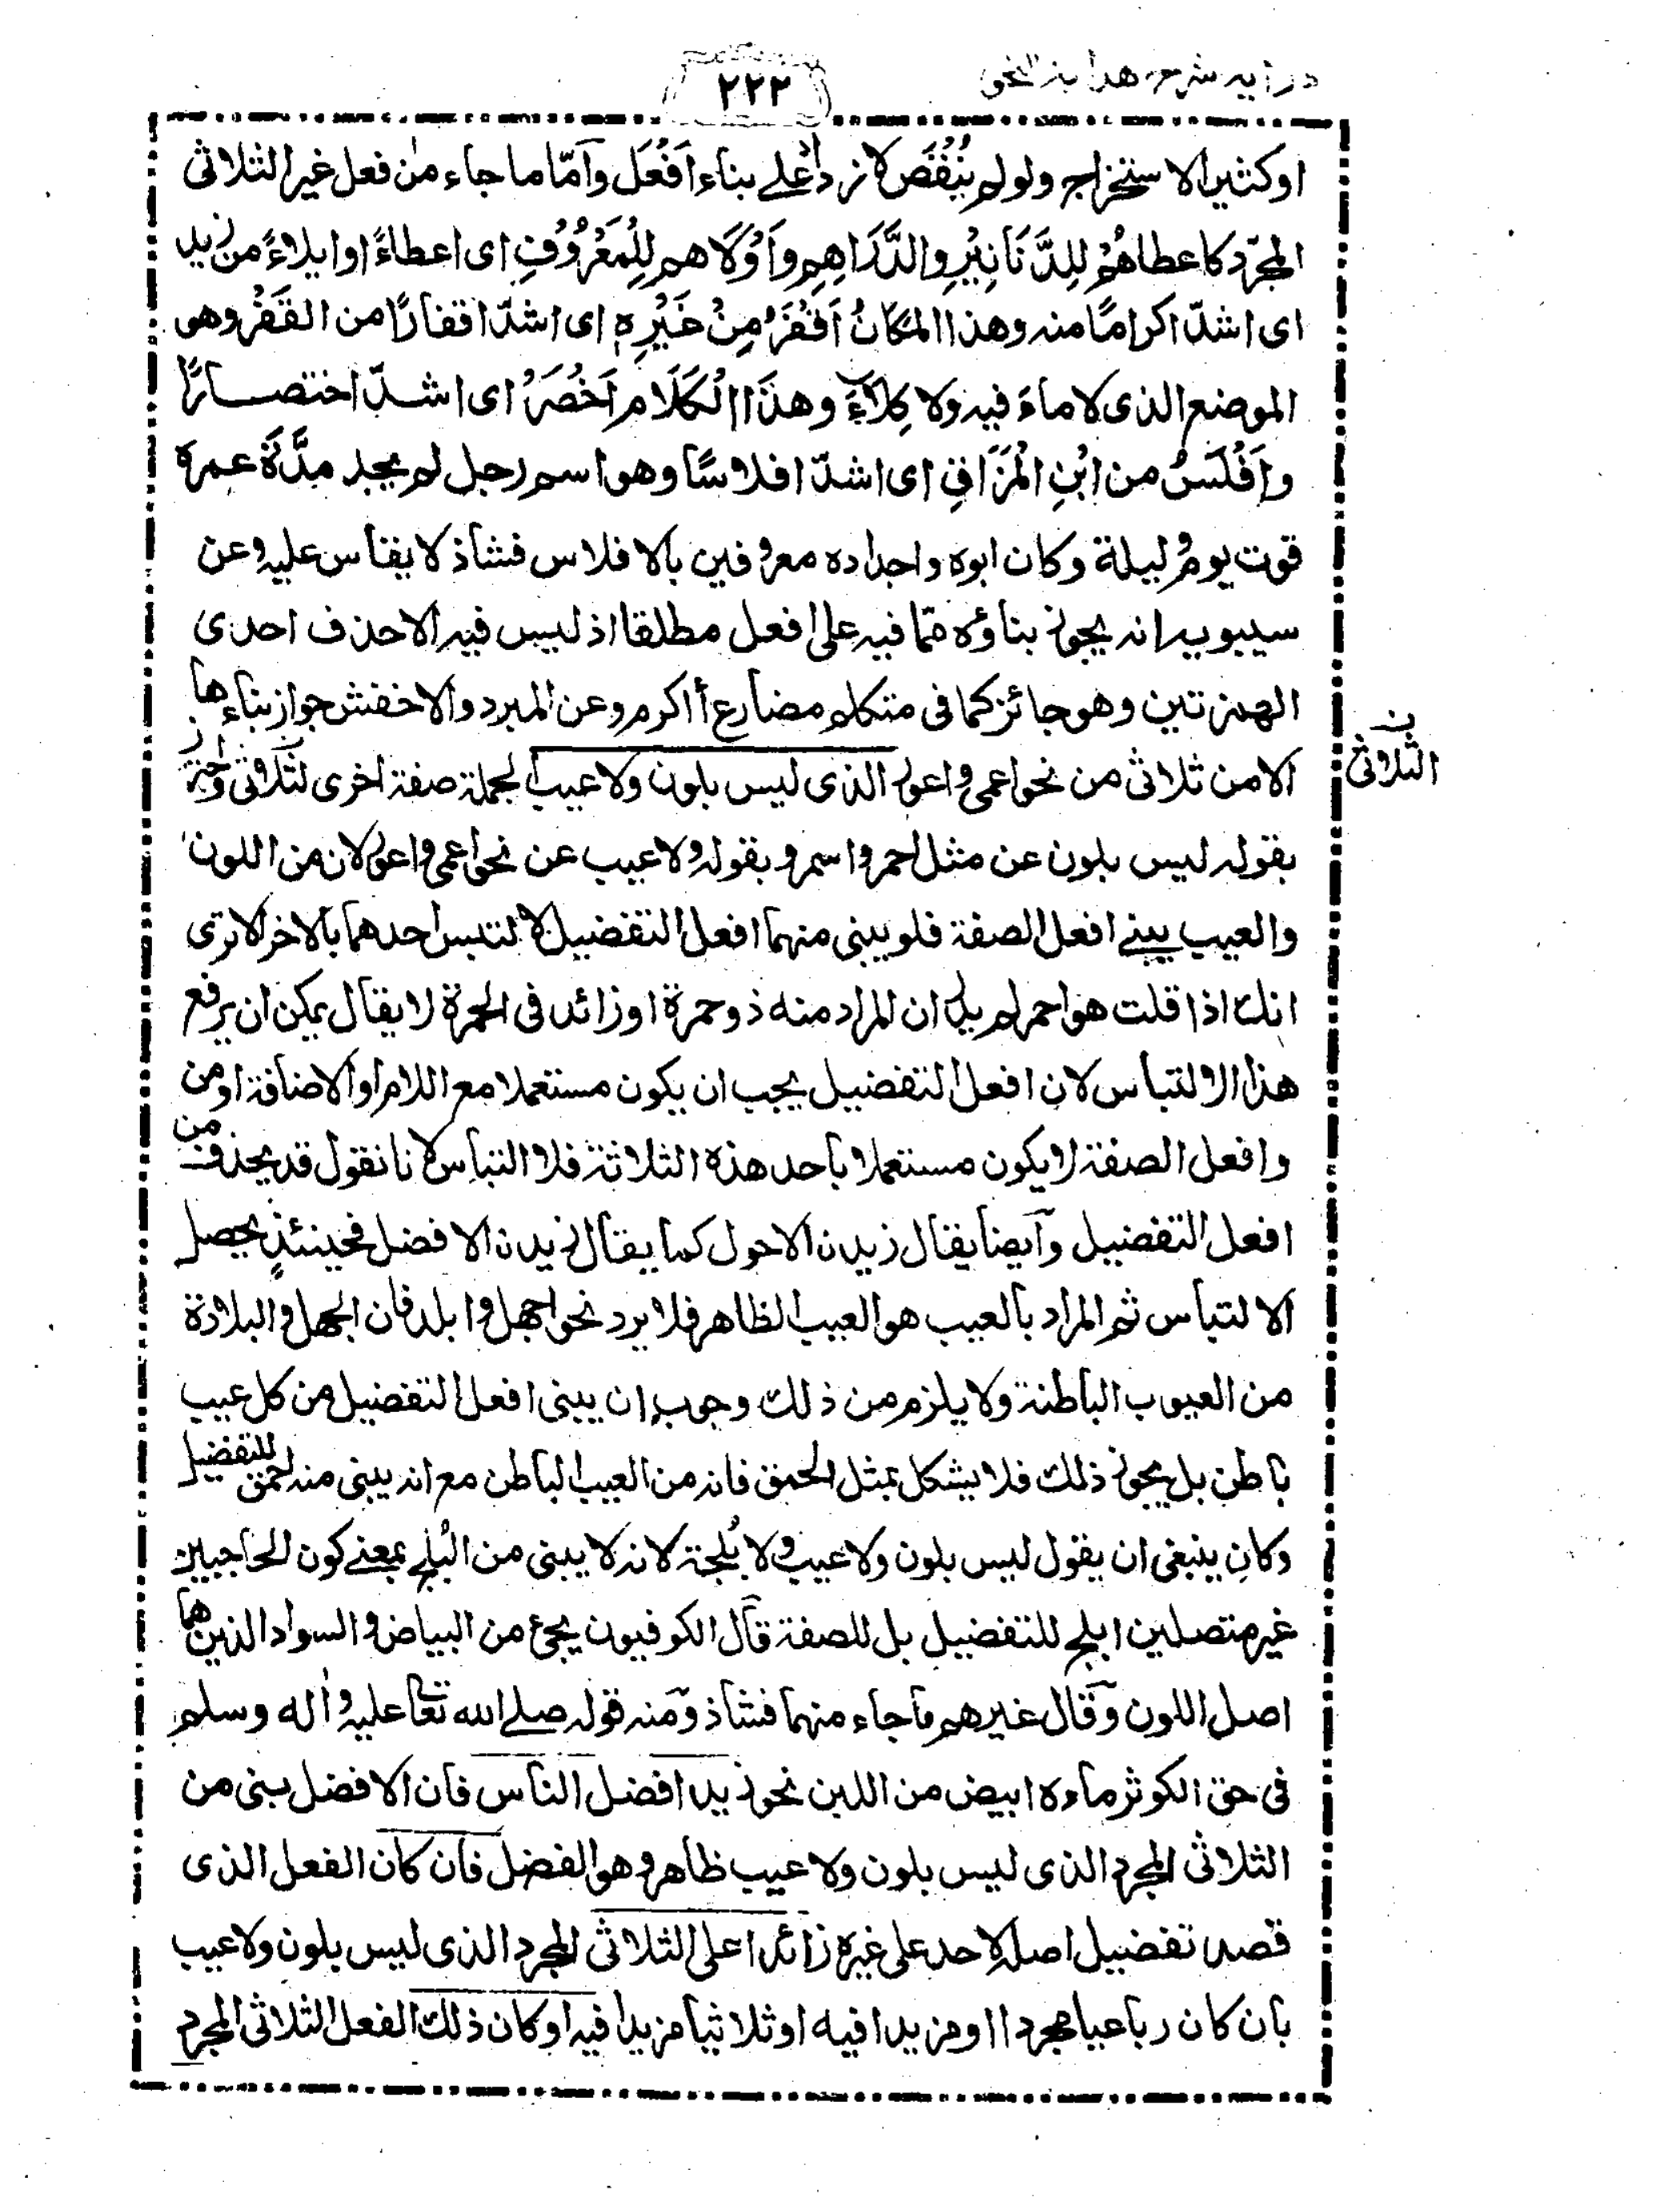 درایہ شرح ھدایۃ النحو
۲۲۲
او كثير الاستخراج ولو لم يُنْقَصْ لا نزداد علے بناء اَفْعَل وآمّا ما جاء من فعل غير الثلاثى
المجرّد كاعطاهُمْ لِلدَّنَانِيْرِ والدَّرَاهِمِ وَاَوْلَاهم لِلْمَعْرُوْفِ اى اعطاءً او ايلاءً من زيد
اى اشدّ اكرامًا منه وهذا المكانُ اَقْفَرُ مِنْ غَيْرِهٖ اى اشدّ اقفارًا من القَفْرُ وهى
الموضع الذى لا ماءَ فيه ولا كِلَاءَ وهذَا الْكَلَام اَخْصَرُ اى اشدّ اختصارًا
واَفْلَسُ من ابْنِ الْمُزَاقِ اى اشدّ افلاسًا وهو اسم رجل لم يجد مدَّة عمره
قوت يوم وليلة وكان ابوه واجداده معروفين بالافلاس فشاذ لا يقاس عليه وعن
سيبويه انه يجوز بناؤه مما فيه على افعل مطلقا اذ ليس فيه الا حذف احدى
الهمزتين وهو جائز كما فى متكلم مضارع أاكرم وعن المبرد والاخفش جواز بناءها
الا من ثلاثى من نحو اعمى واعور الذى ليس بلون ولا عيب الجملة صفة اخرى لثلاثى واحترز
الثلاثى ن
بقوله ليس بلون عن مثل احمر واسمر وبقوله ولا عيب عن نحو اعمى واعور لان من اللون
والعيب يبنے افعل الصفة فلو يبنى منهما افعل التفضيل لالتبس احدهما بالاخر الا ترى
انك اذا قلت هو احمر لم يدر ان المراد منه ذو حمرة او زائد فى الحمرة لا يقال يمكن ان يرفع
هذا الالتباس لان افعل التفضيل يجب ان يكون مستعملا مع اللام او الاضافة او من
وافعل الصفة لا يكون مستعملا باحد هذه الثلاثة فلا التباس لانا نقول قد يحذف من
افعل التفضيل وآيضا يقال زيدن الاحول كما يقال زيدن الافضل فحينئذٍ يحصل
الالتباس ثم المراد بالعيب هو العيب الظاهر فلا يرد نحو اجهل وابلد فان الجهل والبلادة
من العيوب الباطنة ولا يلزم من ذلك وجوب ان يبنى افعل التفضيل من كل عيب
باطن بل يجوز ذلك فلا يشكل بمثل الحمق فانه من العيب الباطن مع انه يبنى منه احمق للتفضيل
وكان ينبغى ان يقول ليس بلون ولا عيب ولا بُلجة لانه لا يبنى من البُلج بمعنے كون الحاجبين
غير متصلين ابلج للتفضيل بل للصفة قآل الكوفيون يجئ من البياض والسواد الذين هما
اصل اللون وقآل غيرهم ما جاء منهما فشاذ ومنه قوله صلے الله تعا عليه واٰله وسلم
فى حق الكوثر ماءه ابيض من اللبن نحو زيد افضل الناس فان الافضل بنى من
الثلاثى المجرد الذى ليس بلون ولا عيب ظاهر وهو الفضل فان كان الفعل الذى
قصد تفضيل اصله لاحد على غيره زائدا على الثلاثى المجرد الذى ليس بلون ولا عيب
بان كان رباعيا مجردا او مزيدا فيه او ثلاثيا مزيدا فيه او كان ذلك الفعل الثلاثى المجرد